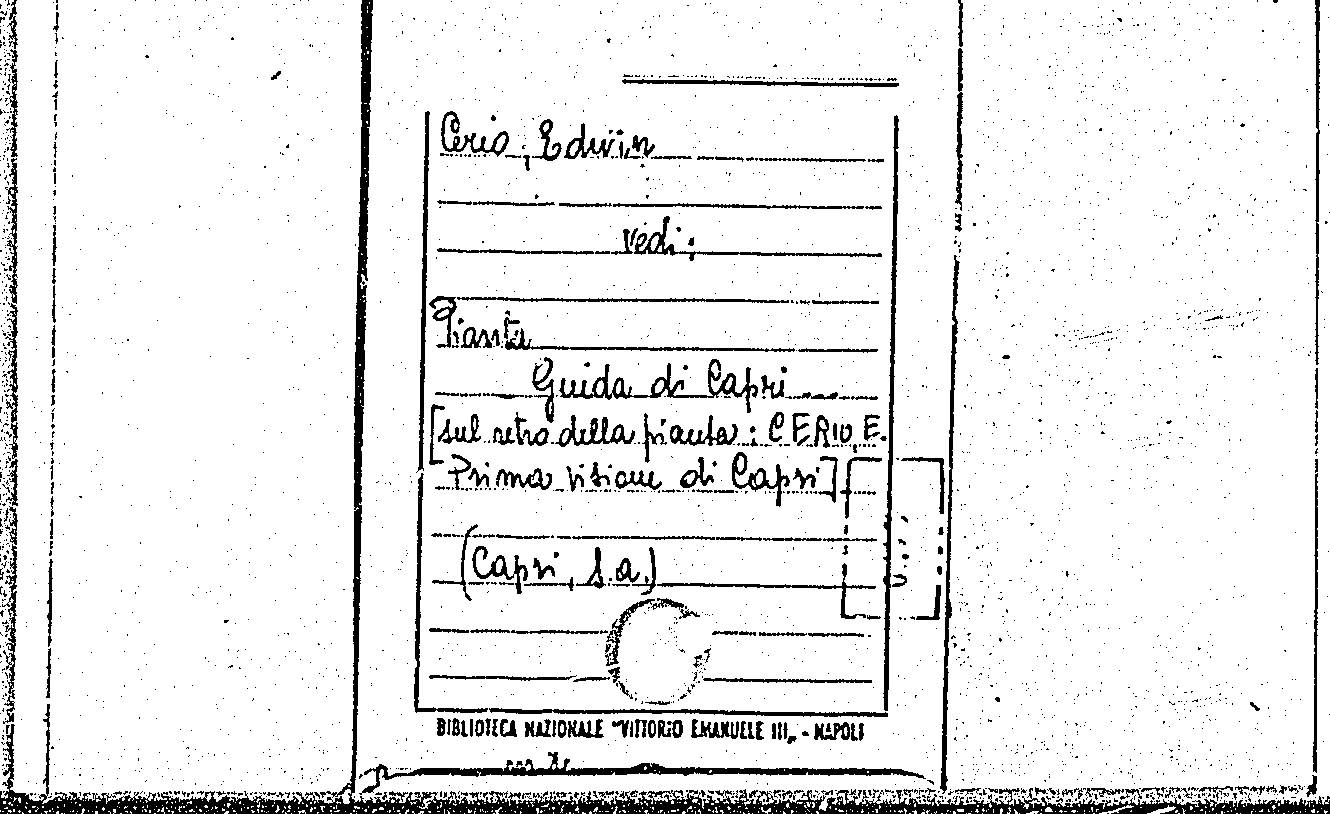 Cerio, Edwin
vedi:
Pianta
Guida di Capri ...
[sul retro della pianta: CERIO, E.
Prima visione di Capri]
(Capri, s.a.)
BIBLIOTECA NAZIONALE "VITTORIO EMANUELE III„ - NAPOLI